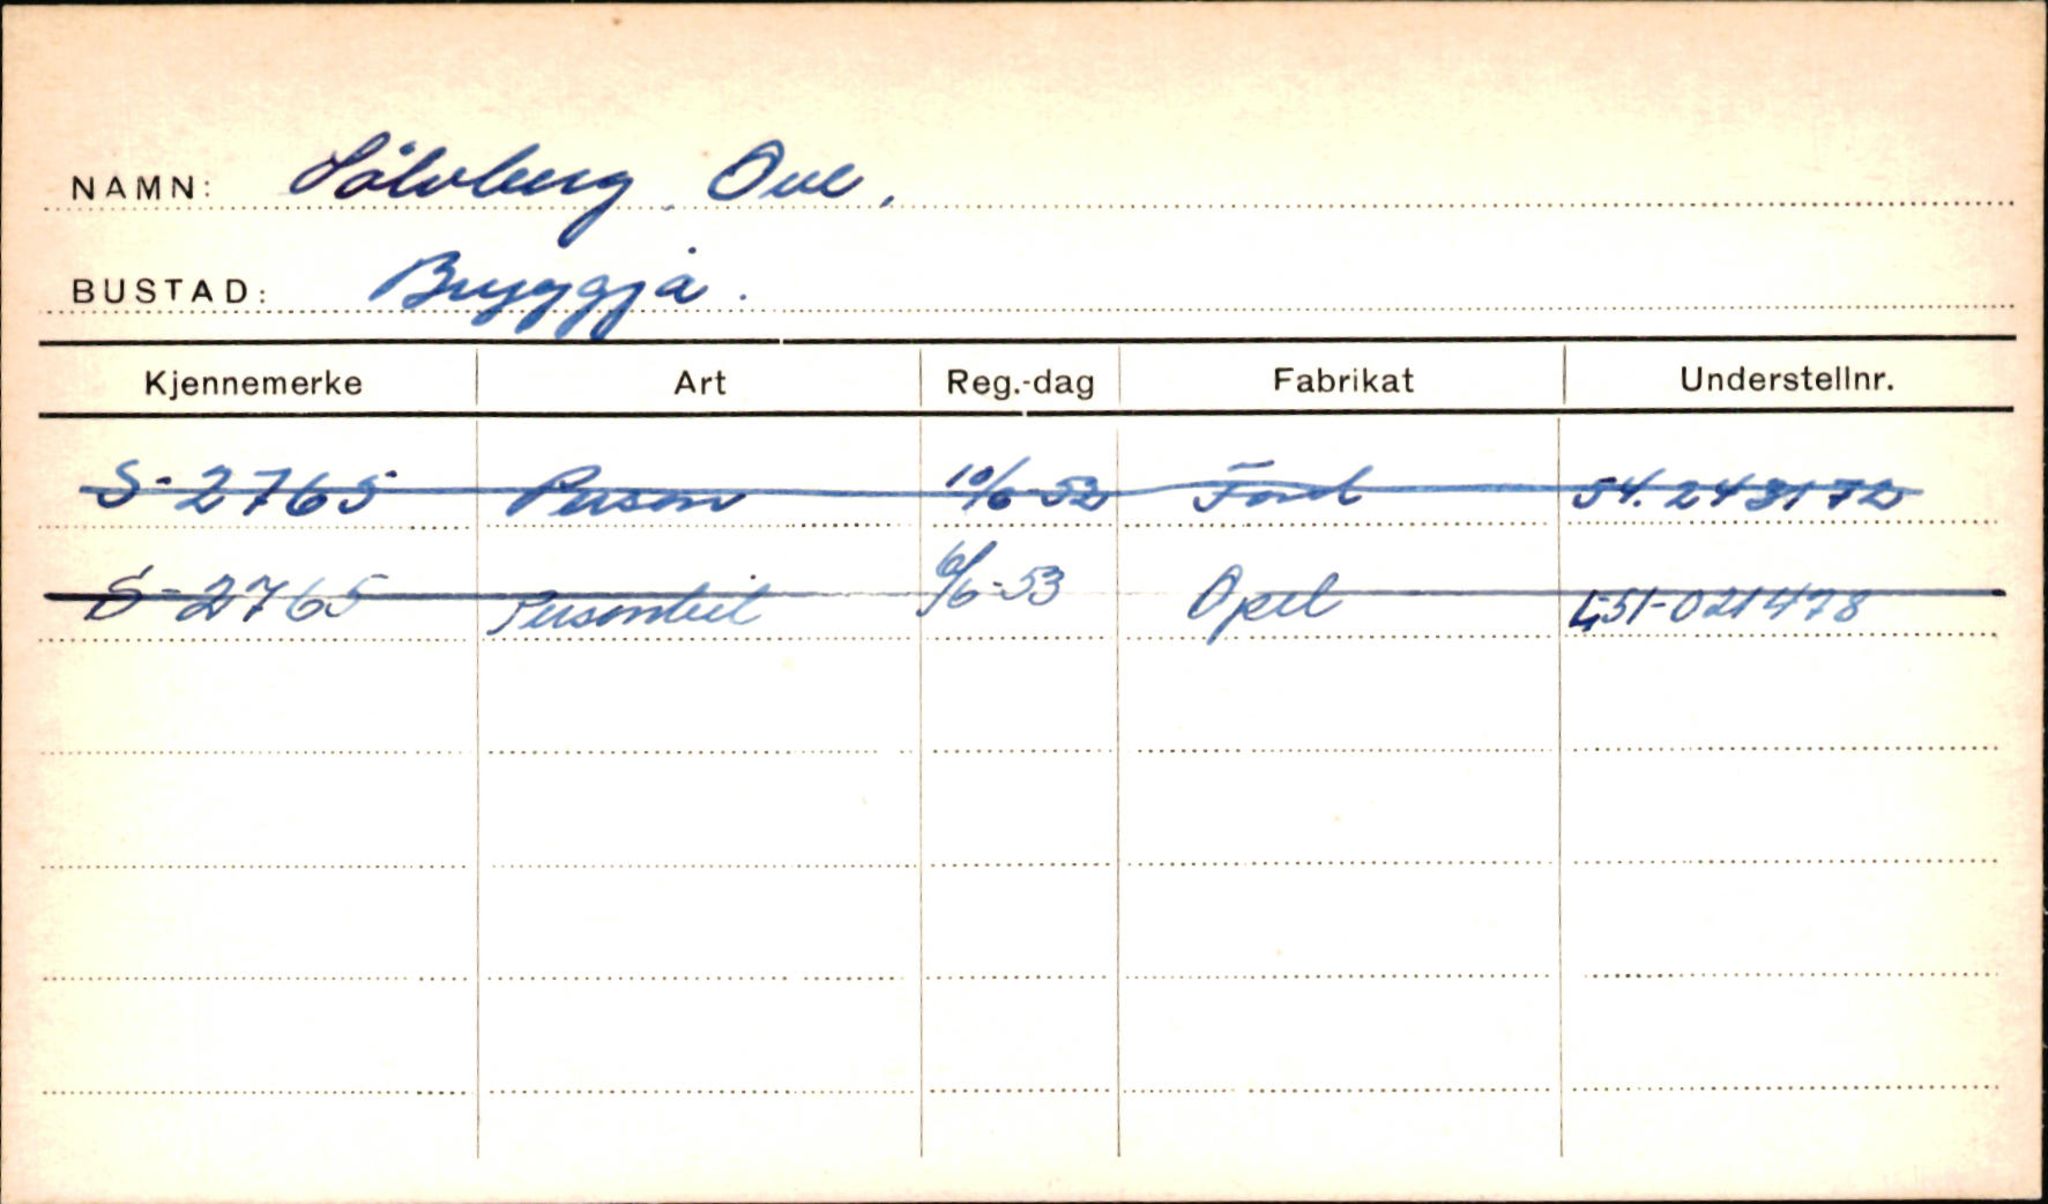 NAMN: Sölvberg, Ove,
BUSTAD: Bryggja.
Kjennemerke Art Reg.-dag Fabrikat Understellnr.
S-2765 Person 10/6-52 Ford 54.243172
S-2765 Personbil 6/6-53 Opel L51-021478